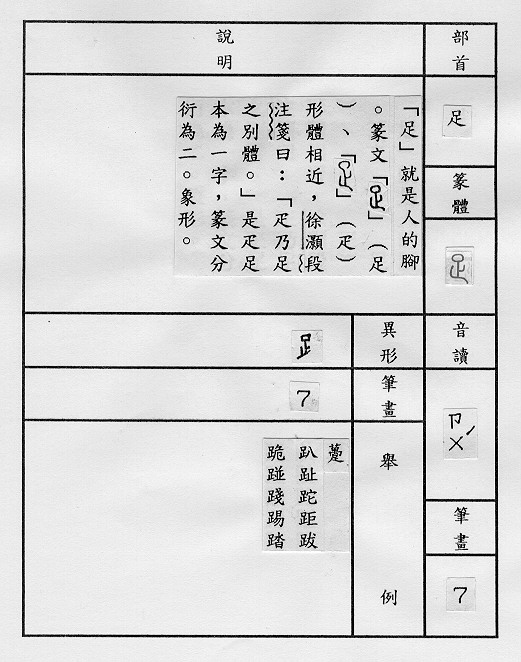 部首
足
篆體
足
音讀
ㄗㄨˊ
筆畫
7
說明
「足」就是人的腳
。篆文「足」（足
）、「疋」（疋）
形體相近，徐灝段
注箋曰：「疋乃足
之別體。」是疋足
本為一字，篆文分
衍為二。象形。
異形
𧾷
筆畫
7
舉例
躉
趴趾跎距跋
跪踫踐踢踏